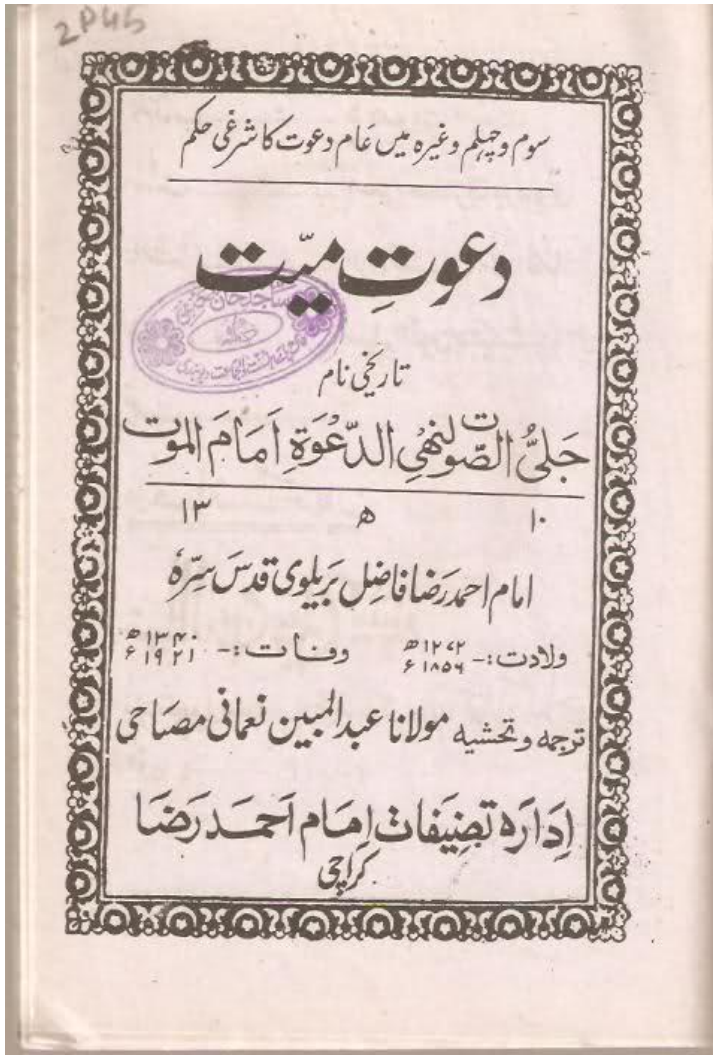 2P45
سوم و چہلم وغیرہ میں عام دعوت کا شرعی حکم
دعوتِ میّت
تاریخی نام
جَلیُّ الصَّوت لِنَھیِ الدَّعْوَۃِ اَمَامَ الموت
۱۰ ھ ۱۳
امام احمد رَضا فاضِل بَریلوی قدس سِرّہٗ
ولادت :- ۱۲۷۲ھ ۱۸۵۶ء وفات :- ۱۳۴۰ھ ۱۹۲۱ء
ترجمہ و تحشیہ مولانا عبدالمبین نعمانی مصباحی
اِدَارہ تصنِیفات اِمَام احمَد رَضَا
کراچی